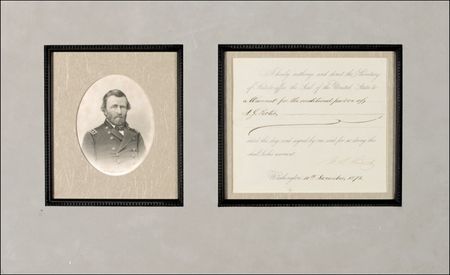 I hereby authorize and direct the Secretary
of State to affix the Seal of the United States to
a Warrant for the conditional pardon of
dated this day and signed by me and for so doing this
shall be his warrant.
Washington, 10th November, 187